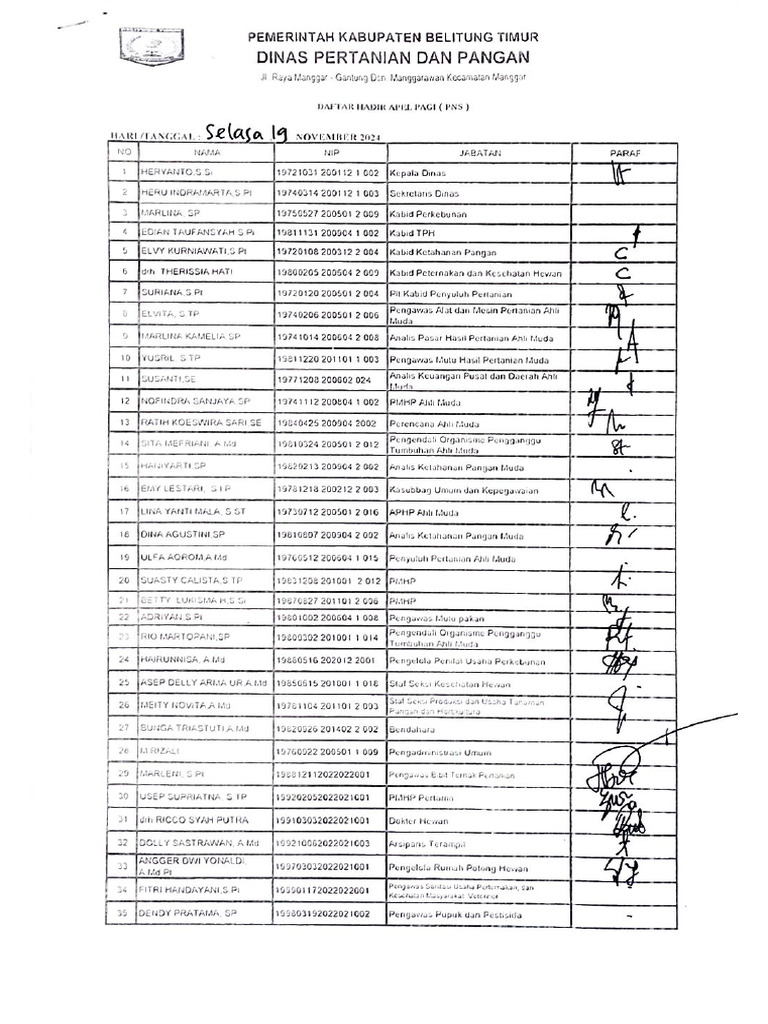 PEMERINTAH KABUPATEN BELITUNG TIMUR
DINAS PERTANIAN DAN PANGAN
Jl. Raya Manggar - Gantung Dsn. Manggarawan Kecamatan Manggar
DAFTAR HADIR APEL PAGI ( PNS )
HARI /TANGGAL : Selasa 19 NOVEMBER 2024
NO NAMA NIP JABATAN PARAF
1 HERYANTO,S.Si 19721031 200112 1 002 Kepala Dinas
2 HERU INDRAMARTA,S.Pt 19740314 200112 1 003 Sekretaris Dinas
3 MARLINA, SP 19750527 200501 2 009 Kabid Perkebunan
4 EDIAN TAUFANSYAH S.Pi 19811131 200904 1 002 Kabid TPH
5 ELVY KURNIAWATI,S.Pi 19720108 200312 2 004 Kabid Ketahanan Pangan C
6 drh. THERISSIA HATI 19800205 200604 2 009 Kabid Peternakan dan Kesehatan Hewan C
7 SURIANA,S.Pt 19720120 200501 2 004 Plt Kabid Penyuluh Pertanian
8 ELVITA, S.TP 19740206 200501 2 006 Pengawas Alat dan Mesin Pertanian Ahli Muda
9 MARLINA KAMELIA SP 19741014 200604 2 008 Analis Pasar Hasil Pertanian Ahli Muda
10 YUSRIL, S.TP 19811220 201101 1 003 Pengawas Mutu Hasil Pertanian Muda
11 SUSANTI,SE 19771208 200602 024 Analis Keuangan Pusat dan Daerah Ahli Muda
12 NOFINDRA SANJAYA,SP 19741112 200804 1 002 PMHP Ahli Muda
13 RATIH KOESWIRA SARI,SE 19840425 200904 2002 Perencana Ahli Muda
14 SITA MEFRIANI, A.Md 19810324 200501 2 012 Pengendali Organisme Pengganggu Tumbuhan Ahli Muda
15 HANIYARTI,SP 19820213 200904 2 002 Analis Ketahanan Pangan Muda
16 EMY LESTARI, S.I.P 19781218 200212 2 003 Kasubbag Umum dan Kepegawaian
17 LINA YANTI MALA, S.ST 19730712 200501 2 016 APHP Ahli Muda
18 DINA AGUSTINI,SP 19810807 200904 2 002 Analis Ketahanan Pangan Muda
19 ULFA AQROM,A.Md 19760512 200604 1 015 Penyuluh Pertanian Ahli Muda
20 SUASTY CALISTA,S.TP 19831208 201001 2 012 PMHP
21 BETTY LUKISMA H,S.Si 19870827 201101 2 006 PMHP
22 ADRIYAN,S.Pi 19801002 200604 1 008 Pengawas Mutu pakan
23 RIO MARTOPANI,SP 19809302 201001 1 014 Pengendali Organisme Pengganggu Tumbuhan Ahli Muda
24 HAIRUNNISA, A.Md 19880516 202012 2001 Pengelola Penilai Usaha Perkebunan
25 ASEP DELLY ARMA UR,A.Md 19850615 201001 1 018 Staf Seksi Kesehatan Hewan
26 MEITY NOVITA,A.Md 19781104 201101 2 003 Staf Seksi Produksi dan Usaha Tanaman Pangan dan Hortikultura
27 BUNGA TRIASTUTI,A.Md 19820926 201402 2 002 Bendahara
28 M.RIZALI 19760922 200501 1 009 Pengadministrasi Umum
29 MARLENI, S.Pt 198812112022022001 Pengawas Bibit Ternak Pertanian
30 USEP SUPRIATNA, S.TP 199202052022021001 PMHP Pertama
31 drh RICCO SYAH PUTRA 199103032022021001 Dokter Hewan
32 DOLLY SASTRAWAN, A.Md 199210062022021003 Arsiparis Terampil
33 ANGGER DWI YONALDI, A.Md Pt 199703032022021001 Pengelola Rumah Potong Hewan
34 FITRI HANDAYANI,S.Pt 199901172022022001 Pengawas Sanitasi Usaha Peternakan, dan Kesehatan Masyarakat Veteriner
35 DENDY PRATAMA, SP 199803192022021002 Pengawas Pupuk dan Pestisida -